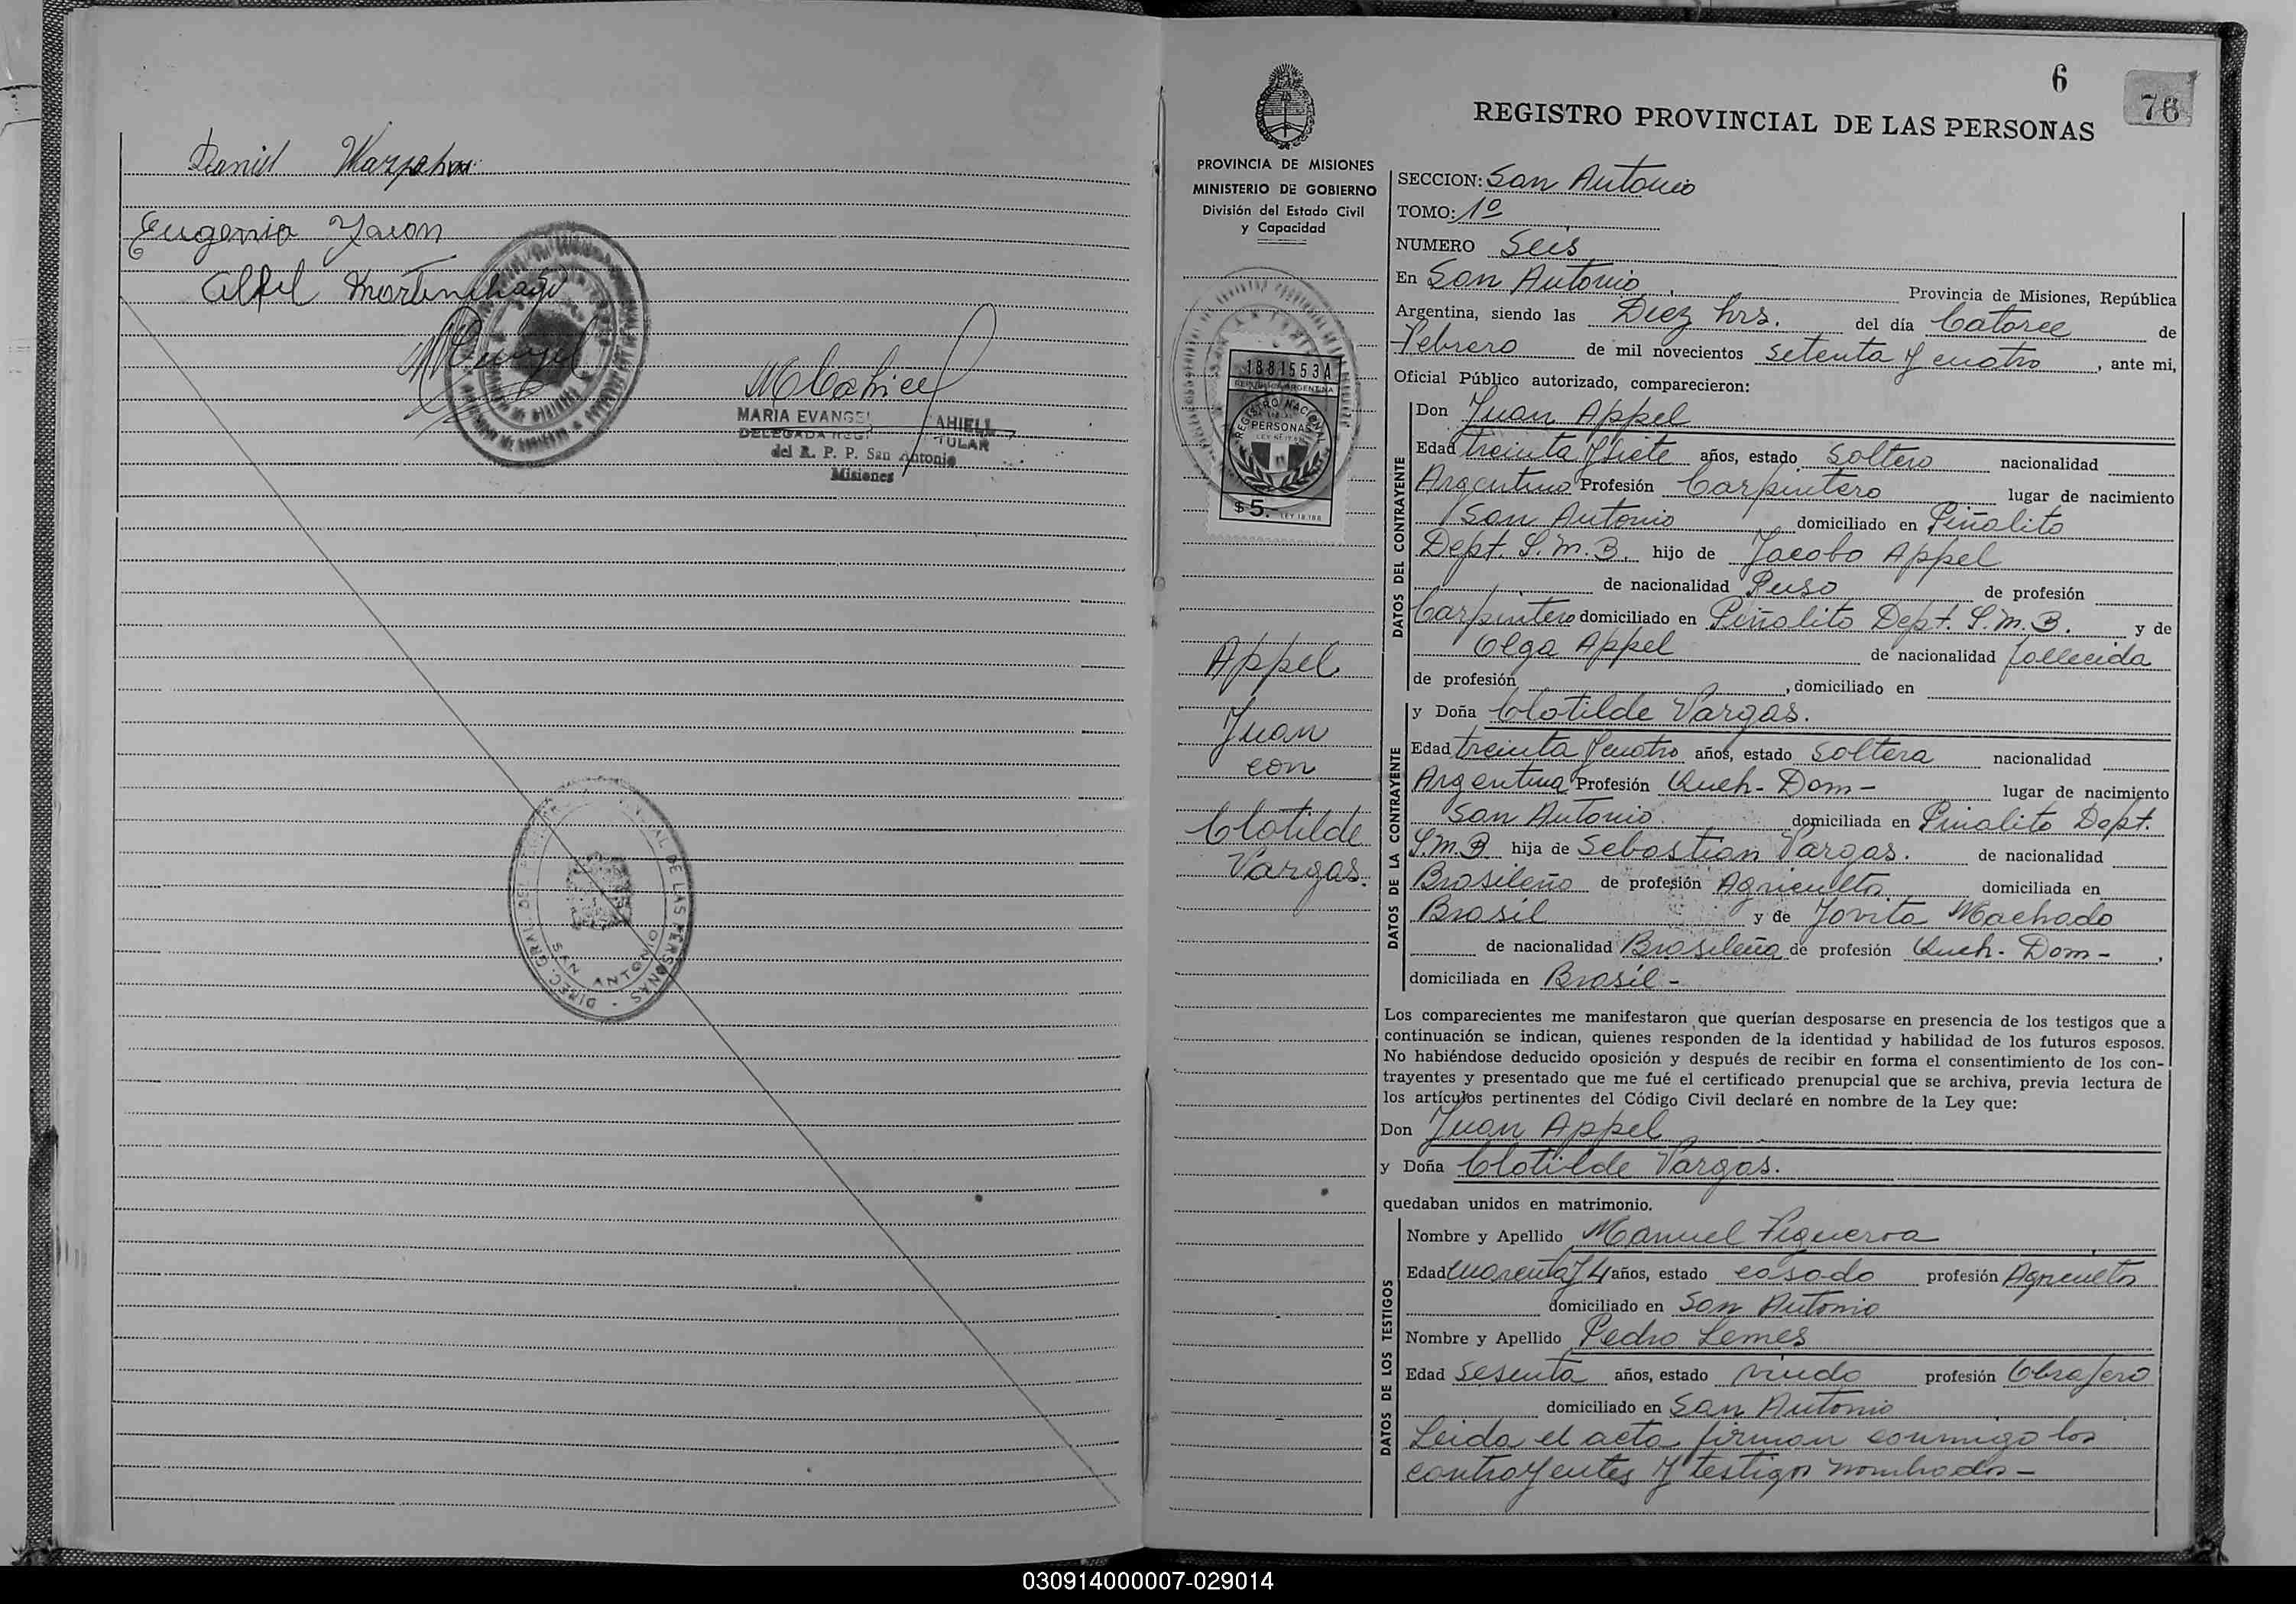 Daniel
Eugenia Yaion
M Cahiell
MARIA EVANGEL AHIELL
DELEGADA REGI TULAR
del R. P. P. San Antonio
Misiones
DIREC. GRAL. DEL REGISTRO PROVINCIAL DE LAS PERSONAS -
SAN ANTONIO
6
76
REGISTRO PROVINCIAL DE LAS PERSONAS
PROVINCIA DE MISIONES
MINISTERIO DE GOBIERNO
División del Estado Civil
y Capacidad
1881553A
REPUBLICA ARGENTINA
REGISTRO NACIONAL
DE LAS
PERSONAS
$ 5.- LEY 18.188
Appel
Juan
con
Clotilde
Vargas.
SECCION: San Antonio
TOMO: 1º
NUMERO Seis
En San Antonio, Provincia de Misiones, República
Argentina, siendo las Diez hrs. del día Catorce de
Febrero de mil novecientos setenta y cuatro, ante mi,
Oficial Público autorizado, comparecieron:
DATOS DEL CONTRAYENTE
Don Juan Appel
Edad treinta y siete años, estado Soltero nacionalidad
Argentino Profesión Carpintero lugar de nacimiento
San Antonio domiciliado en Piñalito
Dept. S.M.B. hijo de Jacobo Appel
de nacionalidad Ruso de profesión
Carpintero domiciliado en Piñalito Dept. S.M.B. y de
Olga Appel de nacionalidad fallecida
de profesión , domiciliado en
DATOS DE LA CONTRAYENTE
y Doña Clotilde Vargas.
Edad treinta y cuatro años, estado Soltera nacionalidad
Argentina Profesión Queh- Dom- lugar de nacimiento
San Antonio domiciliada en Piñalito Dept.
S.M.B hija de Sebastian Vargas. de nacionalidad
Brasileño de profesión Agricultor domiciliada en
Brasil y de Jovita Machado
de nacionalidad Brasileña de profesión Queh- Dom-,
domiciliada en Brasil -
Los comparecientes me manifestaron que querían desposarse en presencia de los testigos que a
continuación se indican, quienes responden de la identidad y habilidad de los futuros esposos.
No habiéndose deducido oposición y después de recibir en forma el consentimiento de los con-
trayentes y presentado que me fué el certificado prenupcial que se archiva, previa lectura de
los artículos pertinentes del Código Civil declaré en nombre de la Ley que:
Don Juan Appel
y Doña Clotilde Vargas.
quedaban unidos en matrimonio.
DATOS DE LOS TESTIGOS
Nombre y Apellido Manuel Figueroa
Edad cuarenta y 4 años, estado casado profesión Agricultor
domiciliado en San Antonio
Nombre y Apellido Pedro Lemes
Edad Sesenta años, estado viudo profesión Obrajero
domiciliado en San Antonio
Leida el acta firman conmigo los
contrayentes y testigos nombrados-
030914000007-029014